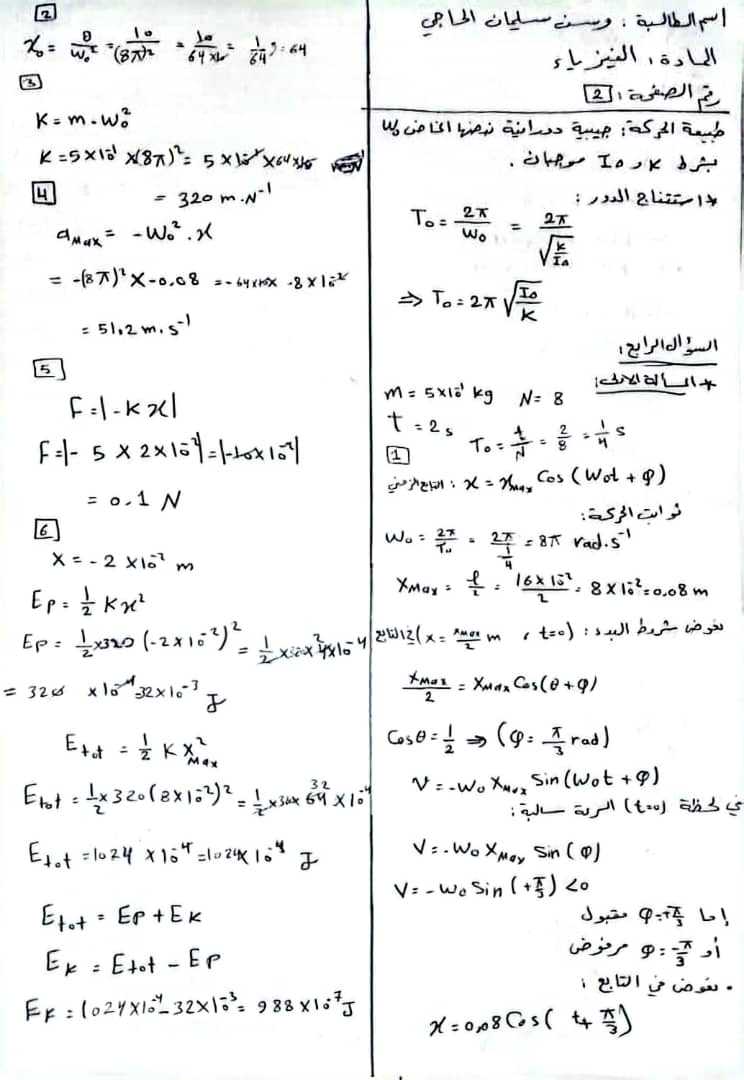 اسم الطالبة : وسن سليمان الحاجي
المادة : الفيزياء
رقم الصفحة : 2
طبيعة الحركة : جيبية دورانية نبضها الخاص W₀
بشرط k و I₀ موجبان .
* استنتاج الدور :
T₀ = 2π/W₀ = 2π/√(k/I₀)
⇒ T₀ = 2π √(I₀/K)
السؤال الرابع :
* المسألة الأولى :
m = 5×10⁻¹ kg N = 8
t = 2 s T₀ = t/N = 2/8 = 1/4 s
1
التابع الزمني : x = x_Max Cos (W₀t + φ)
ثوابت الحركة :
W₀ = 2π/T₀ = 2π/(1/4) = 8π rad.s⁻¹
X_Max = ℓ/2 = 16×10⁻²/2 = 8×10⁻² = 0,08 m
نعوض شروط البدء : (t=0 , x = x_Max/2 m) في التابع
x_Max/2 = X_Max Cos(θ + φ)
Cosθ = 1/2 ⇒ (φ = π/3 rad)
V = -W₀ X_Max Sin(W₀t + φ)
في لحظة (t=0) السرعة سالبة :
V = -W₀ X_Max Sin (φ)
V = -W₀ Sin (+π/3) <0
إما φ = +π/3 مقبول
أو φ = -π/3 مرفوض
. نعوض في التابع :
x = 0,08 Cos( t + π/3)
2
x₀ = θ/W₀² = 10/(8π)² = 10/64×10 = 1/64
3
K = m . W₀²
K = 5×10⁻¹ ×(8π)² = 5×10⁻¹×64×10
= 320 m.N⁻¹
4
a_Max = -W₀² . x
= -(8π)² × -0,08 = -64×10× -8×10⁻²
= 51,2 m.s⁻¹
5
F = |- K x|
F = |- 5 × 2×10⁻²| = |-10×10⁻²|
= 0.1 N
6
X = - 2 ×10⁻² m
Ep = 1/2 K x²
Ep = 1/2 ×320 (-2×10⁻²)² = 1/2 ×320×4×10⁻⁴
= 320 ×10⁻⁴ 32×10⁻³ J
E_tot = 1/2 K X²_Max
E_tot = 1/2 ×320(8×10⁻²)² = 1/2 ×320× 64 ×10⁻⁴
E_tot = 1024 ×10⁻⁴ = 1024×10⁻⁴ J
E_tot = Ep + E_K
E_K = E_tot - Ep
E_K = 1024×10⁻⁴ - 32×10⁻³ = 988×10⁻⁷ J